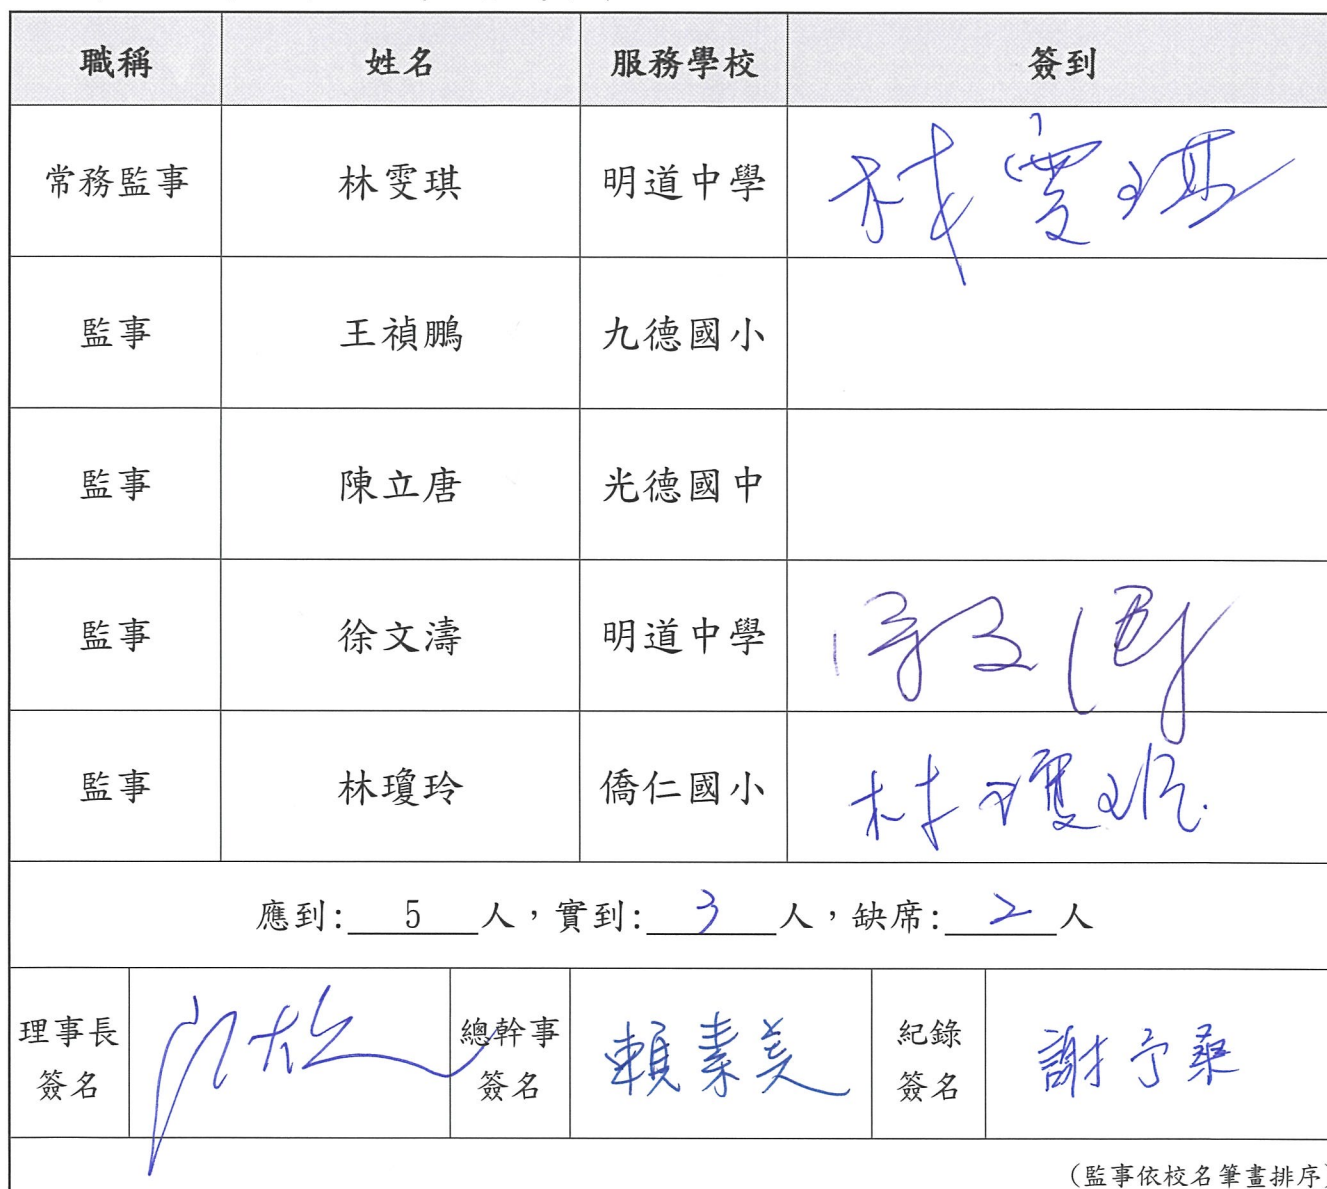 職稱 姓名 服務學校 簽到
常務監事 林雯琪 明道中學 林雯琪
監事 王禎鵬 九德國小
監事 陳立唐 光德國中
監事 徐文濤 明道中學 徐文濤
監事 林瓊玲 僑仁國小 林瓊玲
應到: 5 人，實到: 3 人，缺席: 2 人
理事長 總幹事 賴素美 紀錄 謝予
簽名 簽名 簽名
(監事依校名筆畫排序)